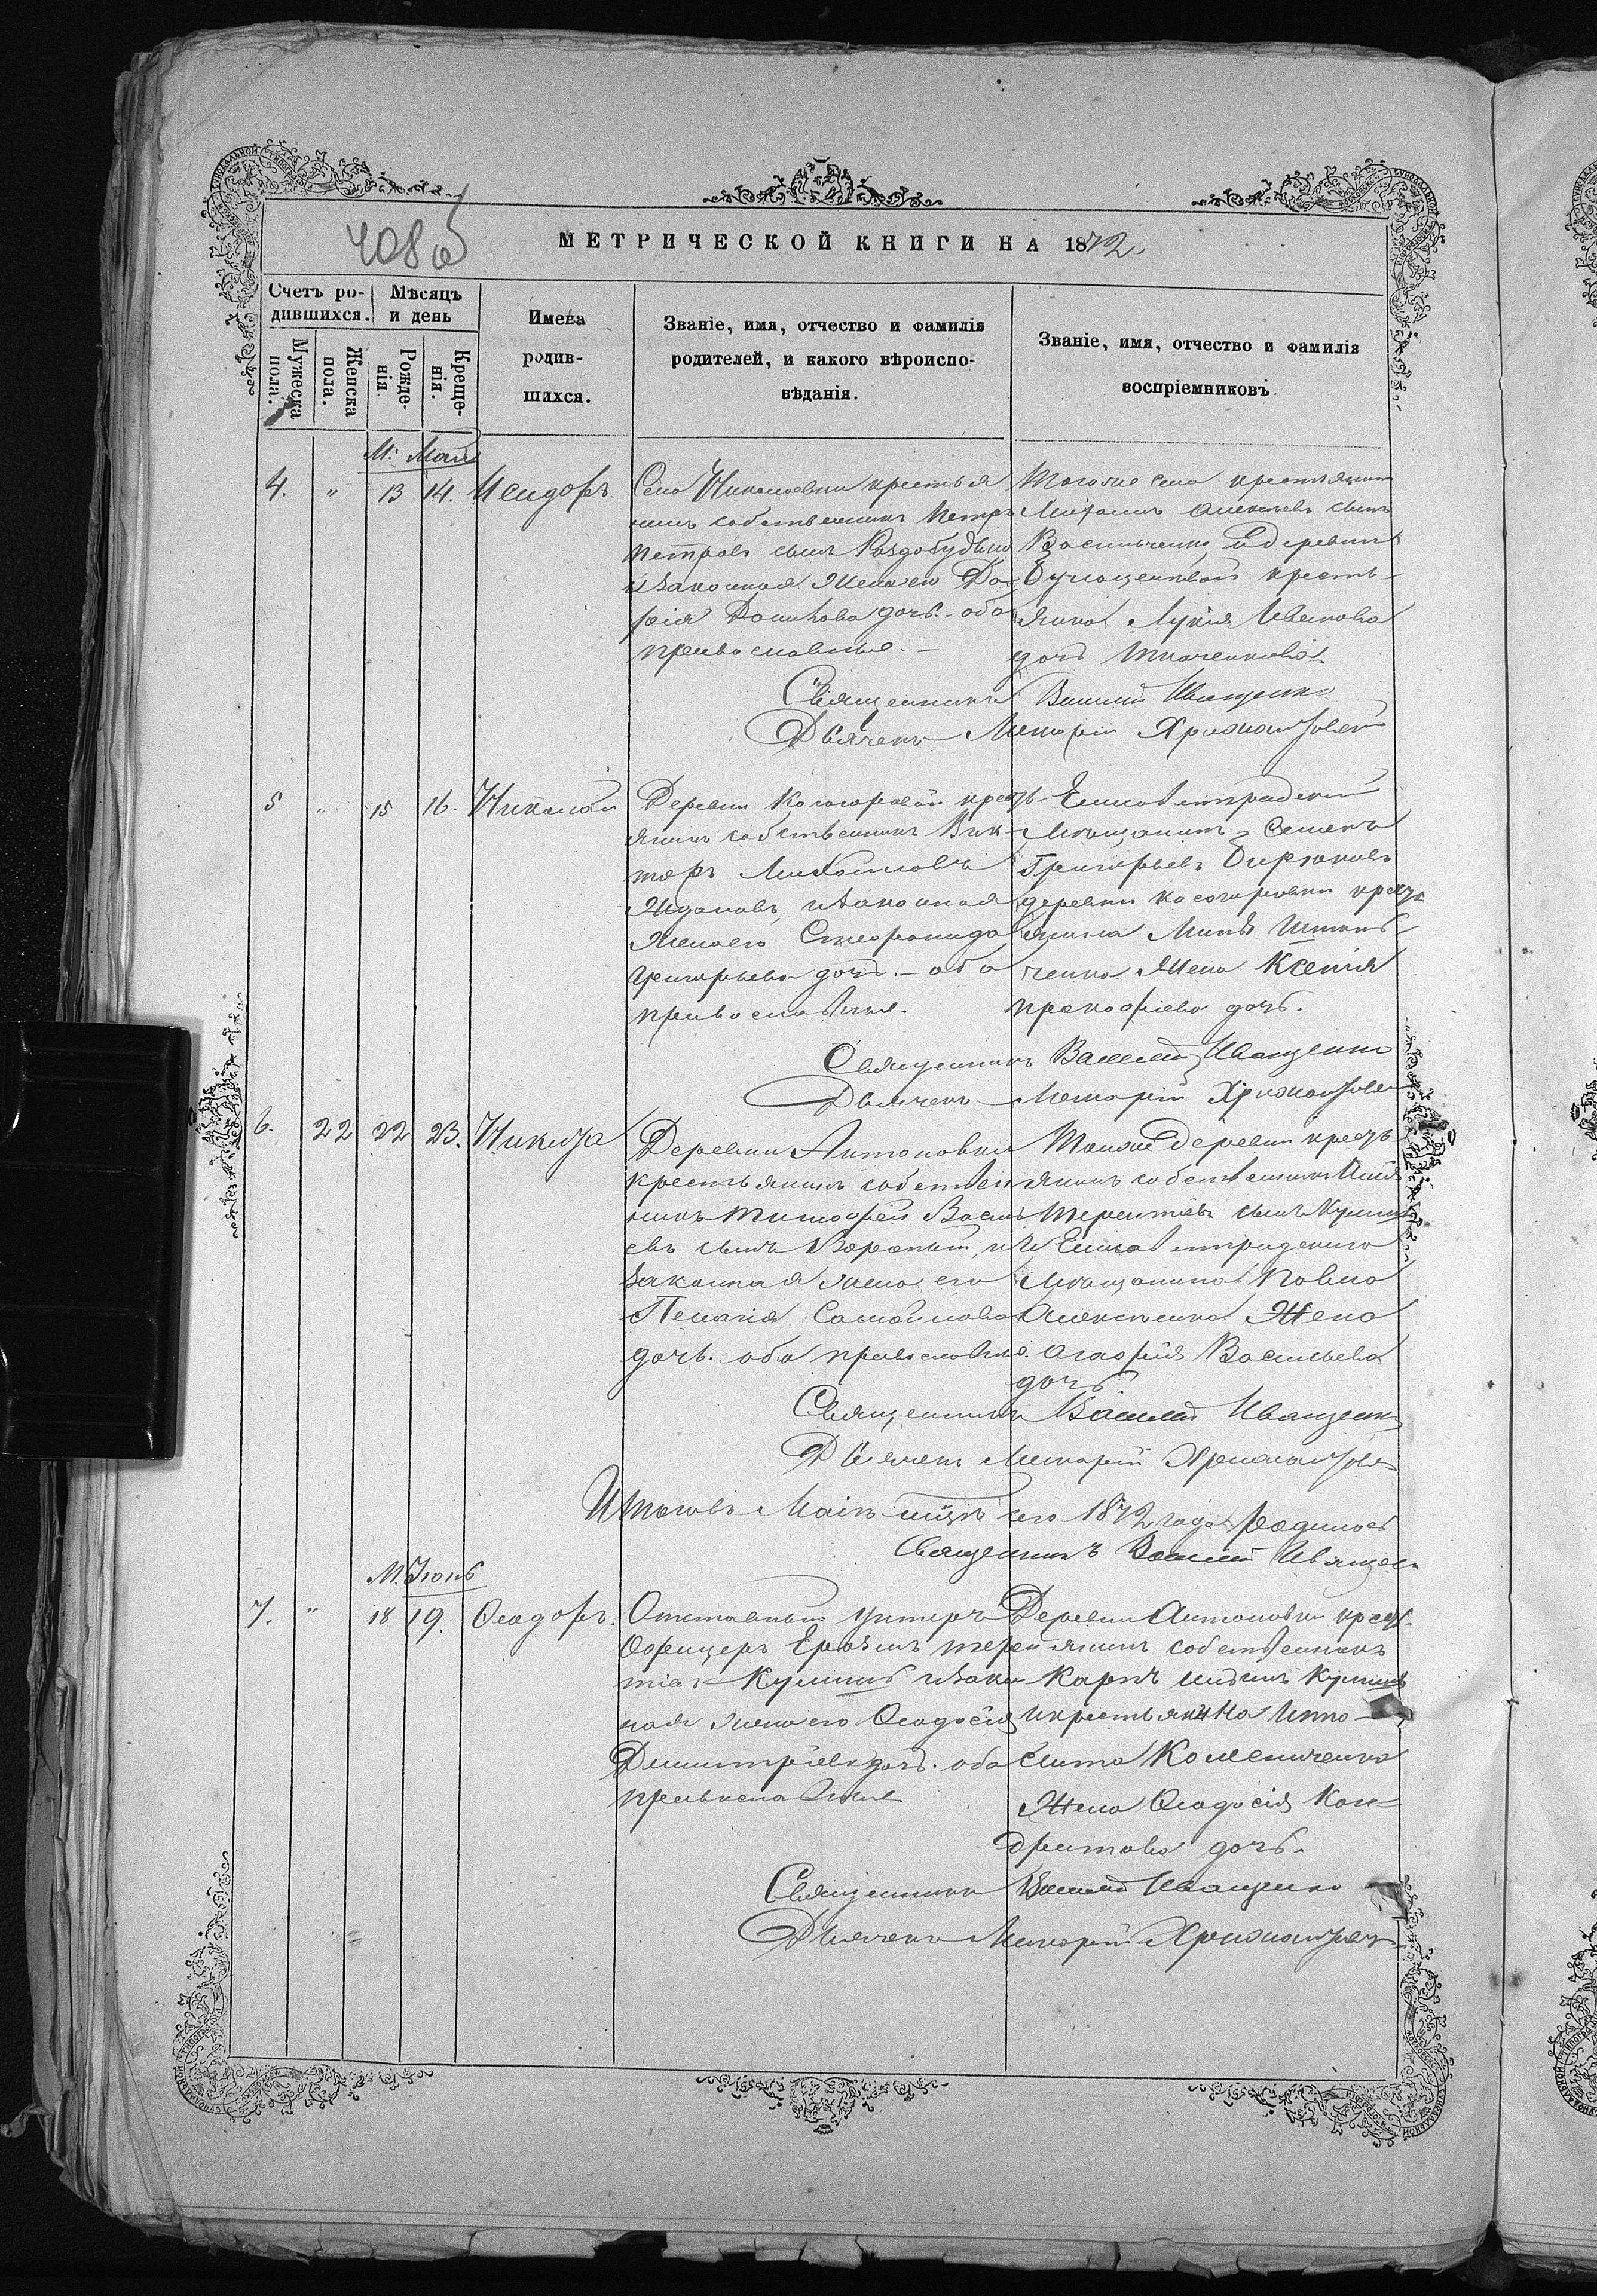 408 об
МЕТРИЧЕСКОЙ КНИГИ НА 1872.
Счетъ ро-
дившихся.
Мужеска пола.
Женска пола.
Мѣсяцъ
и день
Рожде-
нія.
Креще-
нія.
Имена
родив-
шихся.
Званіе, имя, отчество и фамилія
родителей, и какого вѣроиспо-
вѣданія.
Званіе, имя, отчество и фамилія
воспріемниковъ.
М: Май
4. " 13 14. Исидоръ.
Села Николаевки крестья
нинъ собственникъ Петръ
Петровъ сынъ Раздобудько
и законная жена его Да-
рія дочь. оба
православные.
Тогоже села крестьянинъ
Михаилъ Алексѣевъ сынъ
Васильченко, и деревни
кресть-
янка Лукія Иванова
дочь Ткаченкова.
Священникъ Василій Иващенко
Дьячекъ Макарій
5 " 15 16. Николай
Деревни Косогоровки кресть-
янинъ собственникъ Вик-
торъ Михайловъ
Ждановъ, и законная
жена его Степанида
Григорьева дочь. - оба
православные.
Екатеринградскій
мѣщанинъ, Семенъ
Григорьевъ Бирюковъ
деревни Косогоровки кресть
янина
жена Ксенія
Прокофіева дочь.
Священникъ Василій Иващенко
Дьячекъ Макарій
6. 22 22 23. Никита
Деревни Антоновки
крестьянинъ собствен
никъ Тимофей Василь
евъ сынъ и
законная жена его
Пелагія Самойлова
дочь. оба православные.
Тойже деревни кресть
янинъ собственникъ Илія
Терентіевъ сынъ
и
мѣщанина Павла
Алексѣенка жена
Агафія Васильева
дочь
Священникъ Василій Иващенко
Дьячекъ Макарій
Итого въ Маѣ мцѣ сего 1872 года родилось
Священникъ Василій Иващенко
М. Іюнь
7. " 18 19. Ѳеодоръ.
Отставный унтеръ
Офицеръ Ерофѣй Терен
тіевъ и закон
ная жена его Ѳеодосія
Димитріева дочь. оба
православные
Деревни Антоновки крест
янинъ собственникъ
Карпъ
и крестьянина Иппо-
лита Коленченка
жена Ѳеодосія Кон-
дратова дочь.
Священникъ Василій Иващенко
Дьячекъ Макарій